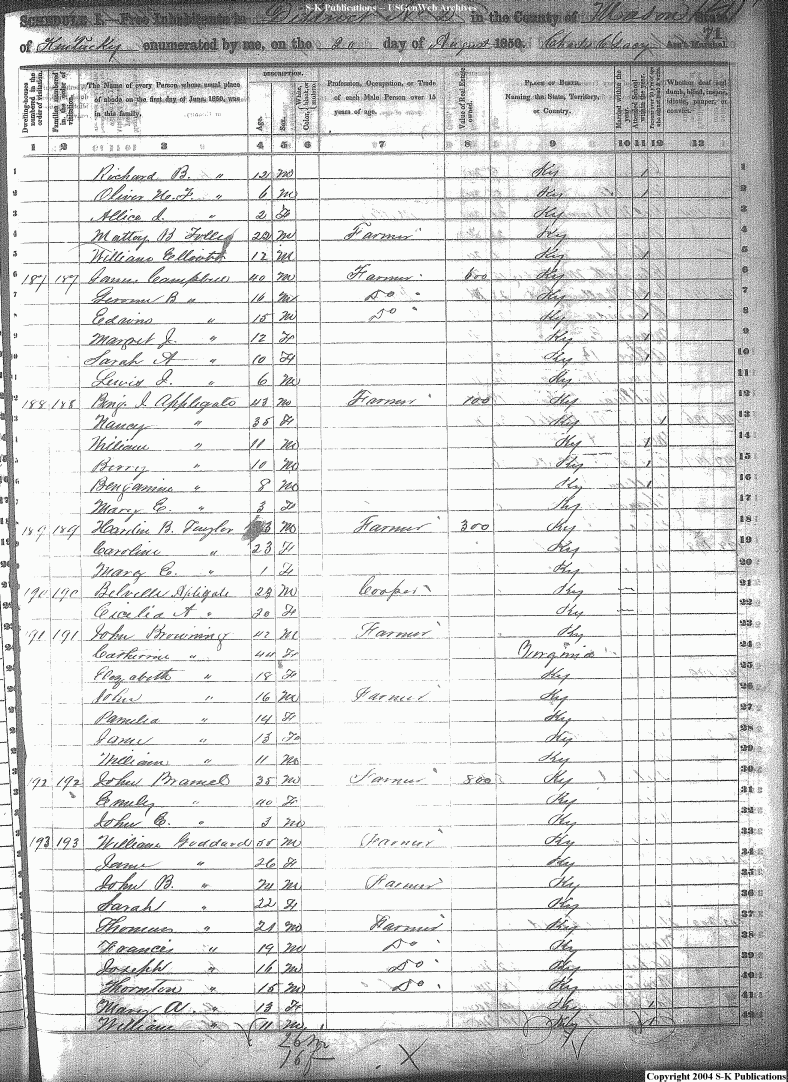 S-K Publications – USGenWeb Archives
SCHEDULE I.—Free Inhabitants in District No 2 in the County of Mason State
of Kentucky enumerated by me, on the 20 day of August 1850. Ass't Marshal. 71
Dwelling-houses numbered in the order of visitation. Families numbered in the order of visitation. The Name of every Person whose usual place of abode on the first day of June, 1850, was in this family. DESCRIPTION. Age. Sex. Color, White, black, or mulatto. Profession, Occupation, or Trade of each Male Person over 15 years of age. Value of Real Estate owned. PLACE OF BIRTH. Naming the State, Territory, or Country. Married within the year. Attended School within the year. Whether deaf and dumb, blind, insane, idiotic, pauper, or convict.
1 2 3 4 5 6 7 8 9 10 11 12 13
1 Richard B. " 12 M Ky 1 1
2 Oliver " 6 M Ky 1 2
3 Allice J. " 2 F Ky 3
4 Mattoy B 22 M Farmer Ky 4
5 William 12 M Ky 1 5
6 187 187 James Campbell 40 M Farmer 600 Ky 6
7 B " 16 M Do " Ky 1 7
8 " 15 M Do " Ky 1 8
9 Margret J. " 12 F Ky 1 9
10 Sarah A " 10 F Ky 1 10
11 Lewis J. " 6 M Ky 11
12 188 188 Benj. J. Applegate 43 M Farmer 100 Ky 12
13 Nancy " 35 F Ky 1 13
14 William " 11 M Ky 1 14
15 Berry " 10 M Ky 1 15
16 Benjamin " 8 M Ky 1 16
17 Mary E. " 3 F Ky 17
18 189 189 Hardin B. M Farmer 300 Ky 18
19 Caroline " 23 F Ky 19
20 Mary E. " 1 F Ky 20
21 190 190 Belville Apligate 22 M Cooper Ky 21
22 Cicilia A " 20 F Ky 22
23 191 191 John Browning 42 M Farmer Ky 23
24 Catherine " 44 F Virginia 24
25 Elizabeth " 18 F Ky 25
26 John " 16 M Farmer Ky 26
27 Pamelia " 14 F Ky 27
28 Jane " 13 F Ky 28
29 William " 11 M Ky 29
30 192 192 John Bramel 35 M Farmer 800 Ky 30
31 Emily " 40 F Ky 31
32 John E. " 3 M Ky 32
33 193 193 William Goddard 55 M Farmer Ky 33
34 Jane " 26 F Ky 34
35 John B. " 24 M Farmer Ky 35
36 Sarah " 22 F Ky 36
37 Thomas " 21 M Farmer Ky 37
38 Francis " 19 M Do " Ky 38
39 Joseph " 16 M Do " Ky 39
40 Thornton " 15 M Do " Ky 40
41 Mary A. " 13 F Ky 1 41
42 William " 11 M Ky 1 42
26 m
16 f X
Copyright 2004 S-K Publications